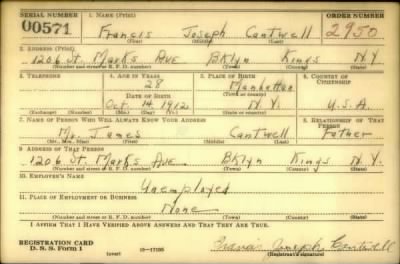 SERIAL NUMBER 1. NAME (Print) ORDER NUMBER
00571 Francis Joseph Cantwell 2950
(First) (Middle) (Last)
2. ADDRESS (Print)
1206 St. Marks Ave BKlyn Kings N.Y.
(Number and street or R. F. D. number) (Town) (County) (State)
3. TELEPHONE 4. AGE IN YEARS 5. PLACE OF BIRTH 6. COUNTRY OF CITIZENSHIP
28 Manhattan
DATE OF BIRTH (Town or county)
Oct. 14 1912 N.Y. U.S.A.
(Exchange) (No.) (Mo.) (Day) (Yr.) (State or country)
7. NAME OF PERSON WHO WILL ALWAYS KNOW YOUR ADDRESS 8. RELATIONSHIP OF THAT PERSON
Mr. James Cantwell Father
(Mr., Mrs., Miss) (First) (Middle) (Last)
9. ADDRESS OF THAT PERSON
1206 St. Marks Ave BKlyn Kings N.Y.
(Number and street or R. F. D. number) (Town) (County) (State)
10. EMPLOYER'S NAME
Unemployed
11. PLACE OF EMPLOYMENT OR BUSINESS
None
(Number and street or R. F. D. number) (Town) (County) (State)
I AFFIRM THAT I HAVE VERIFIED ABOVE ANSWERS AND THAT THEY ARE TRUE.
REGISTRATION CARD
D. S. S. Form 1 (over) 16—17105 Francis Joseph Cantwell
(Registrant's signature)